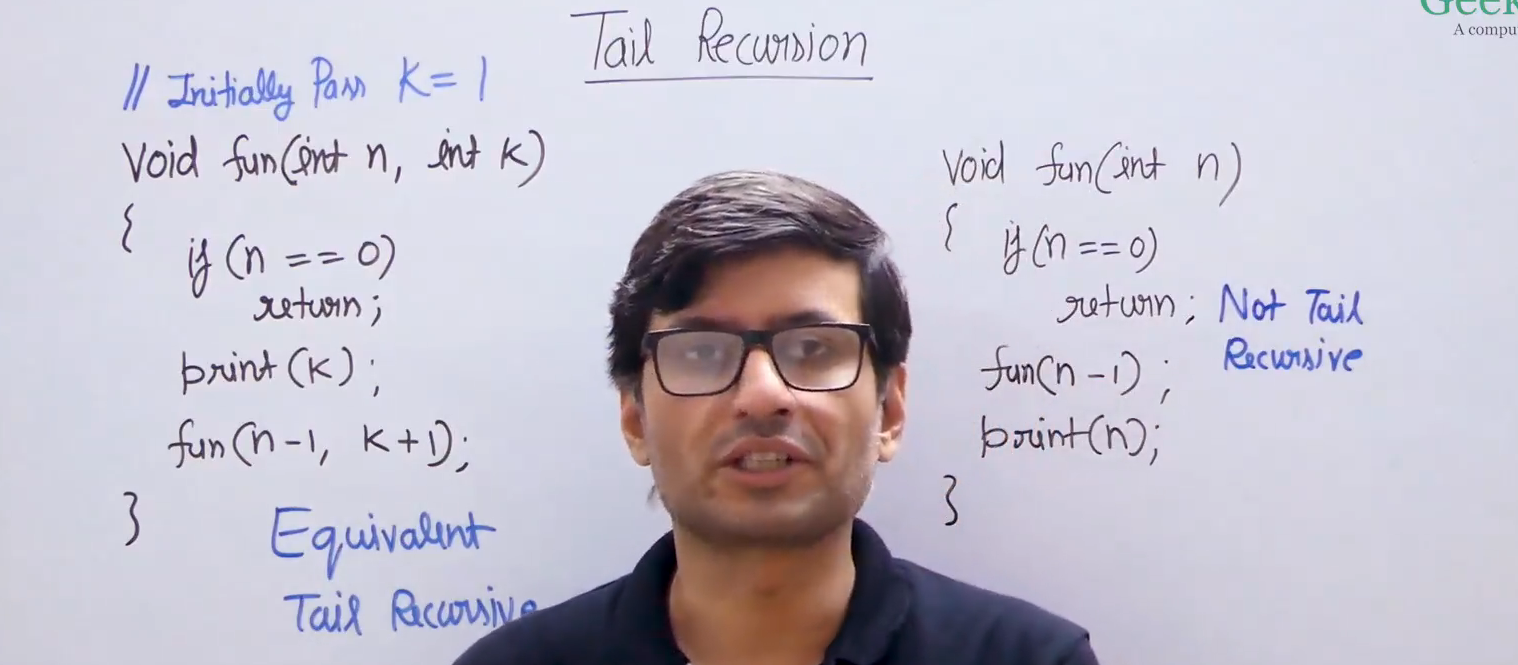 Tail Recursion
// Initially Pass K = 1
Void fun(int n, int K)
{
if (n == 0)
return;
print (K);
fun(n-1, K+1);
}
Equivalent
Tail Recursive
Void fun(int n)
{
if (n == 0)
return;
Not Tail
Recursive
fun(n-1);
print(n);
}
A